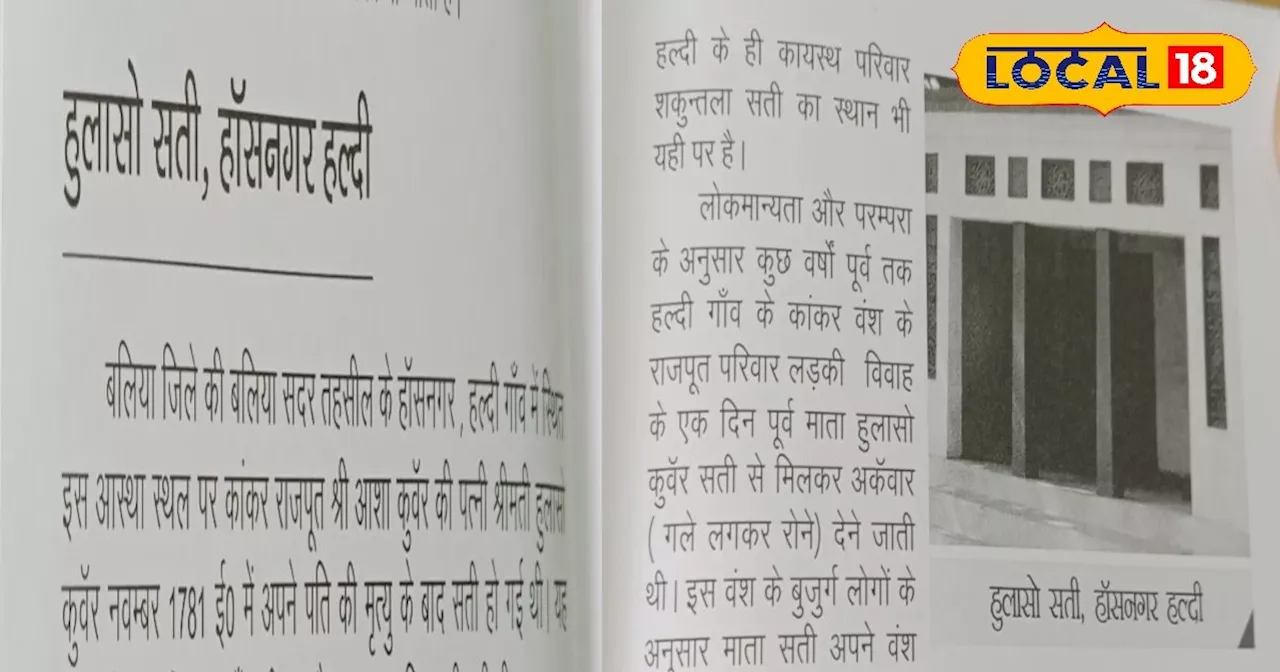 हुलासो सती, हॉसनगर हल्दी
बलिया जिले की बलिया सदर तहसील के हॉसनगर , हल्दी गाँव में स्थित
इस आस्था स्थल पर कांकर राजपूत श्री आशा कुवॅर की पत्नी श्रीमती हुलासो
कुवॅर नवम्बर 1781 ई0 में अपने पति की मृत्यु के बाद सती हो गई थी। यह
हल्दी के ही कायस्थ परिवार
शकुन्तला सती का स्थान भी
यही पर है।
लोकमान्यता और परम्परा
के अनुसार कुछ वर्षो पूर्व तक
हल्दी गाँव के कांकर वंश के
राजपूत परिवार लड़की विवाह
के एक दिन पूर्व माता हुलासो
कुवॅर सती से मिलकर अकॅवार
( गले लगकर रोने) देने जाती
थी। इस वंश के बुजुर्ग लोगों के
अनुसार माता सती अपने वंश
LOCAL 18
हुलासो सती, हॉसनगर हल्दी